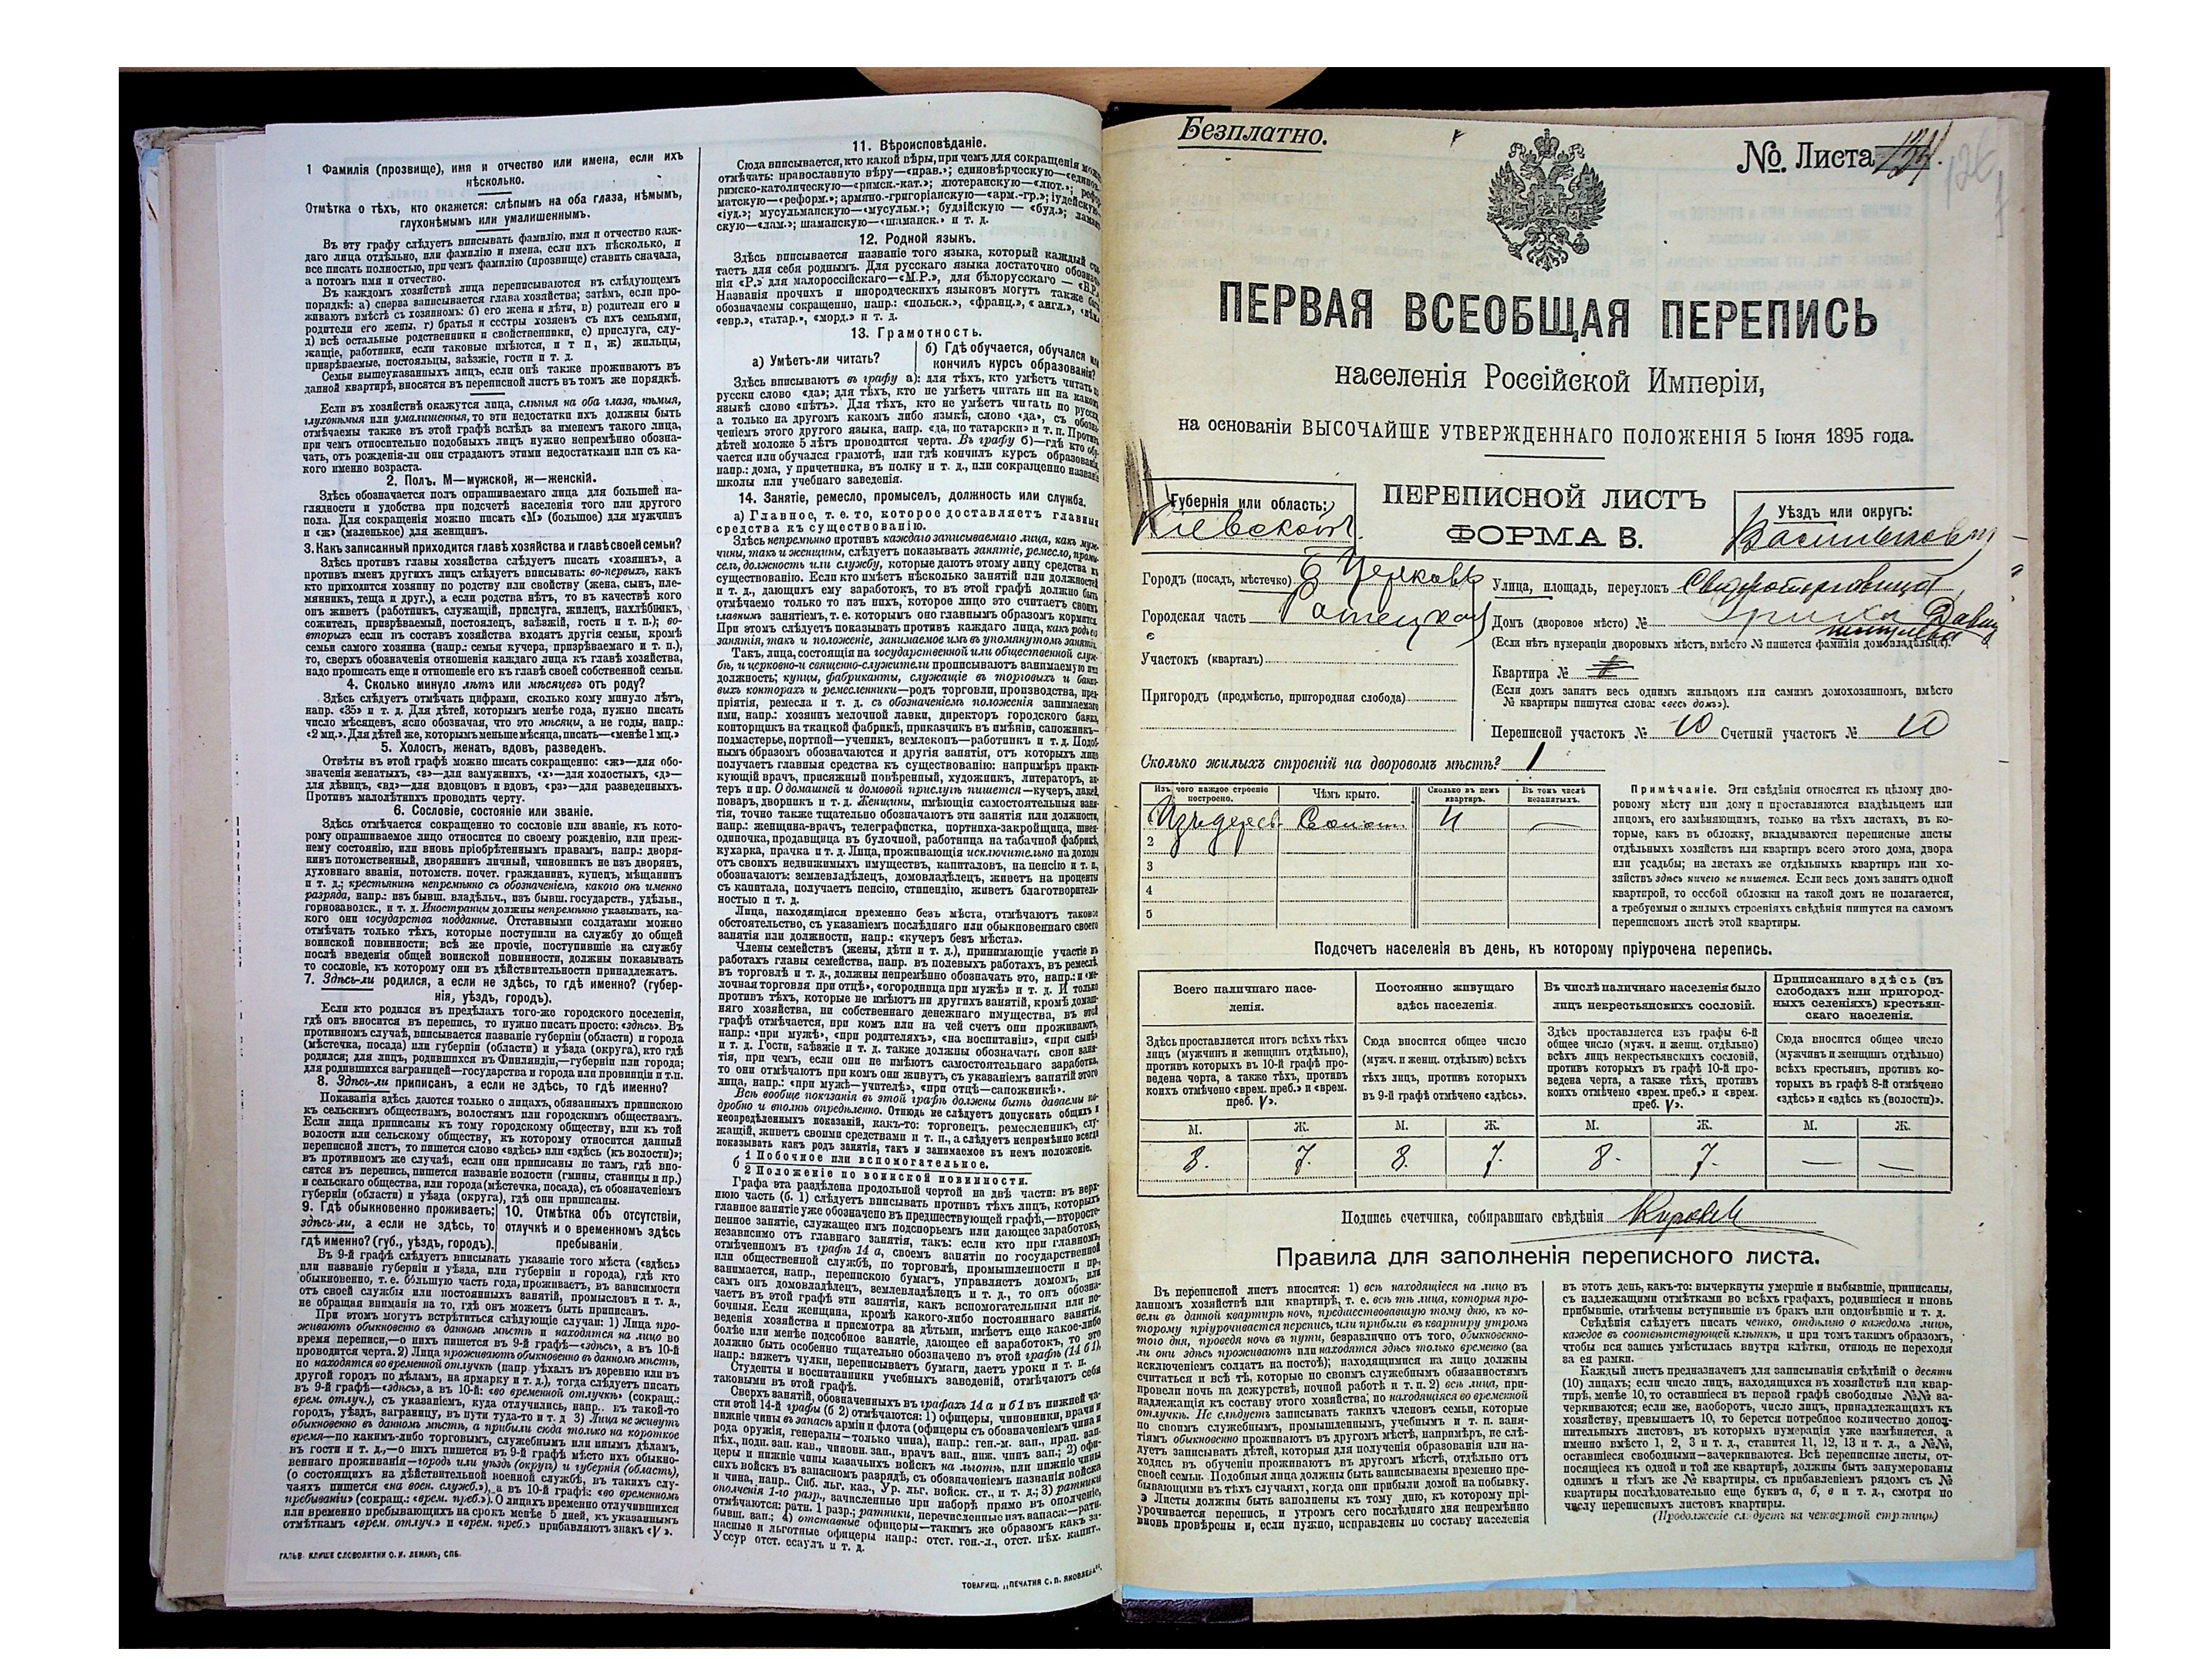 1 Фамилія (прозвище), имя и отчество или имена, если ихъ
нѣсколько.
Отмѣтка о тѣхъ, кто окажется: слѣпымъ на оба глаза, нѣмымъ,
глухонѣмымъ или умалишеннымъ.
Въ эту графу слѣдуетъ вписывать фамилію, имя и отчество каж-
даго лица отдѣльно, или фамилію и имена, если ихъ нѣсколько, и
все писать полностью, при чемъ фамилію (прозвище) ставить сначала,
а потомъ имя и отчество.
Въ каждомъ хозяйствѣ лица переписываются въ слѣдующемъ
порядкѣ: а) сперва записывается глава хозяйства; затѣмъ, если про-
живаютъ вмѣстѣ съ хозяиномъ: б) его жена и дѣти, в) родители его и
родители его жены, г) братья и сестры хозяевъ съ ихъ семьями,
д) всѣ остальные родственники и свойственники, е) прислуга, слу-
жащіе, работники, если таковые имѣются, и т п, ж) жильцы,
призрѣваемые, постояльцы, заѣзжіе, гости и т. д.
Семьи вышеуказанныхъ лицъ, если онѣ также проживаютъ въ
данной квартирѣ, вносятся въ переписной листъ въ томъ же порядкѣ.
Если въ хозяйствѣ окажутся лица, слѣпыя на оба глаза, нѣмыя,
глухонѣмыя или умалишенныя, то эти недостатки ихъ должны быть
отмѣчаемы также въ этой графѣ вслѣдъ за именемъ такого лица,
при чемъ относительно подобныхъ лицъ нужно непремѣнно обозна-
чать, отъ рожденія-ли они страдаютъ этими недостатками или съ ка-
кого именно возраста.
2. Полъ. М—мужской, ж—женскій.
Здѣсь обозначается полъ опрашиваемаго лица для большей на-
глядности и удобства при подсчетѣ населенія того или другого
пола. Для сокращенія можно писать «М» (большое) для мужчинъ
и «ж» (маленькое) для женщинъ.
3. Какъ записанный приходится главѣ хозяйства и главѣ своей семьи?
Здѣсь противъ главы хозяйства слѣдуетъ писать «хозяинъ», а
противъ именъ другихъ лицъ слѣдуетъ вписывать: во-первыхъ, какъ
кто приходится хозяину по родству или свойству (жена, сынъ, пле-
мянникъ, теща и друг.), а если родства нѣтъ, то въ качествѣ кого
онъ живетъ (работникъ, служащій, прислуга, жилецъ, нахлѣбникъ,
сожитель, призрѣваемый, постоялецъ, заѣзжій, гость и т. п.); во-
вторыхъ если въ составъ хозяйства входятъ другія семьи, кромѣ
семьи самого хозяина (напр.: семья кучера, призрѣваемаго и т. п.),
то, сверхъ обозначенія отношенія каждаго лица къ главѣ хозяйства,
надо прописать еще и отношеніе его къ главѣ своей собственной семьи.
4. Сколько минуло лѣтъ или мѣсяцевъ отъ роду?
Здѣсь слѣдуетъ отмѣчать цифрами, сколько кому минуло лѣтъ,
напр. «35» и т. д. Для дѣтей, которымъ менѣе года, нужно писать
число мѣсяцевъ, ясно обозначая, что это мѣсяцы, а не годы, напр.:
«2 мц.». Для дѣтей же, которымъ меньше мѣсяца, писать—«менѣе 1 мц.»
5. Холостъ, женатъ, вдовъ, разведенъ.
Отвѣты въ этой графѣ можно писать сокращенно: «ж»—для обо-
значенія женатыхъ, «з»—для замужнихъ, «х»—для холостыхъ, «д»—
для дѣвицъ, «вд»—для вдовцовъ и вдовъ, «рз»—для разведенныхъ.
Противъ малолѣтнихъ проводить черту.
6. Сословіе, состояніе или званіе.
Здѣсь отмѣчается сокращенно то сословіе или званіе, къ кото-
рому опрашиваемое лицо относится по своему рожденію, или преж-
нему состоянію, или вновь пріобрѣтеннымъ правамъ, напр.: дворя-
нинъ потомственный, дворянинъ личный, чиновникъ не изъ дворянъ,
духовнаго званія, потомств. почет. гражданинъ, купецъ, мѣщанинъ
и т. д.; крестьянинъ непремѣнно съ обозначеніемъ, какого онъ именно
разряда, напр.: изъ бывш. владѣльч., изъ бывш. государств., удѣльн.,
горнозаводск., и т. д. Иностранцы должны непремѣнно указывать, ка-
кого они государства подданные. Отставными солдатами можно
отмѣчать только тѣхъ, которые поступили на службу до общей
воинской повинности; всѣ же прочіе, поступившіе на службу
послѣ введенія общей воинской повинности, должны показывать
то сословіе, къ которому они въ дѣйствительности принадлежатъ.
7. Здѣсь-ли родился, а если не здѣсь, то гдѣ именно? (губер-
нія, уѣздъ, городъ).
Если кто родился въ предѣлахъ того-же городского поселенія,
гдѣ онъ вносится въ перепись, то нужно писать просто: «здѣсь». Въ
противномъ случаѣ, вписывается названіе губерніи (области) и города
(мѣстечка, посада) или губерніи (области) и уѣзда (округа), кто гдѣ
родился; для лицъ, родившихся въ Финляндіи,—губерніи или города;
для родившихся заграницей—государства и города или провинціи и т.п.
8. Здѣсь-ли приписанъ, а если не здѣсь, то гдѣ именно?
Показанія здѣсь даются только о лицахъ, обязанныхъ припискою
къ сельскимъ обществамъ, волостямъ или городскимъ обществамъ.
Если лица приписаны къ тому городскому обществу, или къ той
волости или сельскому обществу, къ которому относится данный
переписной листъ, то пишется слово «здѣсь» или «здѣсь (къ волости)»;
въ противномъ же случаѣ, если они приписаны не тамъ, гдѣ вно-
сятся въ перепись, пишется названіе волости (гмины, станицы и пр.)
и сельскаго общества, или города (мѣстечка, посада), съ обозначеніемъ
губерніи (области) и уѣзда (округа), гдѣ они приписаны.
9. Гдѣ обыкновенно проживаетъ:
здѣсь-ли, а если не здѣсь, то
гдѣ именно? (губ., уѣздъ, городъ).
10. Отмѣтка объ отсутствіи,
отлучкѣ и о временномъ здѣсь
пребываніи.
Въ 9-й графѣ слѣдуетъ вписывать указаніе того мѣста («здѣсь»
или названіе губерніи и уѣзда, или губерніи и города), гдѣ кто
обыкновенно, т. е. бо́льшую часть года, проживаетъ, въ зависимости
отъ своей службы или постоянныхъ занятій, промысловъ и т. д.,
не обращая вниманія на то, гдѣ онъ можетъ быть приписанъ.
При этомъ могутъ встрѣтиться слѣдующіе случаи: 1) Лица про-
живаютъ обыкновенно въ данномъ мѣстѣ и находятся на лицо во
время переписи,—о нихъ пишется въ 9-й графѣ—«здѣсь», а въ 10-й
проводится черта. 2) Лица проживаютъ обыкновенно въ данномъ мѣстѣ,
но находятся во временной отлучкѣ (напр. уѣхалъ въ деревню или въ
другой городъ по дѣламъ, на ярмарку и т. д.), тогда слѣдуетъ писать
въ 9-й графѣ—«здѣсь», а въ 10-й: «во временной отлучкѣ» (сокращ.:
врем. отлуч.), съ указаніемъ, куда отлучились, напр.. въ такой-то
городъ, уѣздъ, заграницу, въ пути туда-то и т. д 3) Лица не живутъ
обыкновенно въ данномъ мѣстѣ, а прибыли сюда только на короткое
время—по какимъ-либо торговымъ, служебнымъ или инымъ дѣламъ,
въ гости и т. д.,—о нихъ пишется въ 9-й графѣ мѣсто ихъ обыкно-
веннаго проживанія—городъ или уѣздъ (округъ) и губернія (область),
(о состоящихъ на дѣйствительной военной службѣ, въ такихъ слу-
чаяхъ пишется «на воен. служб.»), а въ 10-й графѣ: «во временномъ
пребываніи» (сокращ.: «врем. преб.»). О лицахъ временно отлучившихся
или временно пребывающихъ на срокъ менѣе 5 дней, къ указаннымъ
отмѣткамъ «врем. отлуч.» и «врем. преб.» прибавляютъ знакъ «V».
ГАЛЬВ. КЛИШЕ СЛОВОЛИТНИ О. И. ЛЕМАНЪ, СПБ.
11. Вѣроисповѣданіе.
Сюда вписывается, кто какой вѣры, при чемъ для сокращенія можно
отмѣчать: православную вѣру—«прав.»; единовѣрческую—«единов.
римско-католическую—«римск.-кат.»; лютеранскую—«лют.»; рефор-
матскую—«реформ.»; армяно-григоріанскую—«арм.-гр.»; іудейскую
«іуд.»; мусульманскую—«мусульм.»; буддійскую — «буд.»; ламай-
скую—«лам.»; шаманскую—«шаманск.» и т. д.
12. Родной языкъ.
Здѣсь вписывается названіе того языка, который каждый счи-
таетъ для себя роднымъ. Для русскаго языка достаточно обозначе-
нія «Р.» для малороссійскаго «М.Р.», для бѣлорусскаго — «Б.Р.»
Названія прочихъ и инородческихъ языковъ могутъ также быть
обозначаемы сокращенно, напр.: «польск.», «франц.», « англ.», «нѣм.
«евр.», «татар.», «морд.» и т. д.
13. Грамотность.
а) Умѣетъ-ли читать?
б) Гдѣ обучается, обучался или
кончилъ курсъ образованія?
Здѣсь вписываютъ въ графу а): для тѣхъ, кто умѣетъ читать по
русски слово «да»; для тѣхъ, кто не умѣетъ читать ни на какомъ
языкѣ слово «нѣтъ». Для тѣхъ, кто не умѣетъ читать по русски,
а только на другомъ какомъ либо языкѣ, слово «да», съ обозна-
ченіемъ этого другого языка, напр. «да, по татарски» и т. п. Противъ
дѣтей моложе 5 лѣтъ проводится черта. Въ графу б)—гдѣ кто обу-
чается или обучался грамотѣ, или гдѣ кончилъ курсъ образованія,
напр.: дома, у причетника, въ полку и т. д., или сокращенно названіе
школы или учебнаго заведенія.
14. Занятіе, ремесло, промыселъ, должность или служба.
а) Главное, т. е. то, которое доставляетъ главныя
средства къ существованію.
Здѣсь непремѣнно противъ каждаго записываемаго лица, какъ муж-
чины, такъ и женщины, слѣдуетъ показывать занятіе, ремесло, промы-
селъ, должность или службу, которые даютъ этому лицу средства къ
существованію. Если кто имѣетъ нѣсколько занятій или должностей
и т. д., дающихъ ему заработокъ, то въ этой графѣ должно быть
отмѣчаемо только то изъ нихъ, которое лицо это считаетъ своимъ
главнымъ занятіемъ, т. е. которымъ оно главнымъ образомъ кормится.
При этомъ слѣдуетъ показывать противъ каждаго лица, какъ родъ его
занятія, такъ и положеніе, занимаемое имъ въ упомянутомъ занятіи.
Такъ, лица, состоящія на государственной или общественной служ-
бѣ, и церковно-и священно-служители прописываютъ занимаемую ими
должность; купцы, фабриканты, служащіе въ торговыхъ и банко-
выхъ конторахъ и ремесленники—родъ торговли, производства, пред-
пріятія, ремесла и т. д. съ обозначеніемъ положенія занимаемаго
ими, напр.: хозяинъ мелочной лавки, директоръ городского банка,
конторщикъ на ткацкой фабрикѣ, приказчикъ въ имѣніи, сапожникъ—
подмастерье, портной—ученикъ, землекопъ—работникъ и т. д. Подоб-
нымъ образомъ обозначаются и другія занятія, отъ которыхъ лицо
получаетъ главныя средства къ существованію: напримѣръ практи-
кующій врачъ, присяжный повѣренный, художникъ, литераторъ, ак-
теръ и пр. О домашней и домовой прислугѣ пишется—кучеръ, лакей,
поваръ, дворникъ и т. д. Женщины, имѣющія самостоятельныя заня-
тія, точно также тщательно обозначаютъ эти занятія или должности,
напр.: женщина-врачъ, телеграфистка, портниха-закройщица, швея-
одиночка, продавщица въ булочной, работница на табачной фабрикѣ,
кухарка, прачка и т. д. Лица, проживающія исключительно на доходы
отъ своихъ недвижимыхъ имуществъ, капиталовъ, на пенсію и т. п.,
обозначаютъ: землевладѣлецъ, домовладѣлецъ, живетъ на проценты
съ капитала, получаетъ пенсію, стипендію, живетъ благотворитель-
ностью и т. д.
Лица, находящіяся временно безъ мѣста, отмѣчаютъ таковое
обстоятельство, съ указаніемъ послѣдняго или обыкновеннаго своего
занятія или должности, напр.: «кучеръ безъ мѣста».
Члены семействъ (жены, дѣти и т. д.), принимающіе участіе въ
работахъ главы семейства, напр. въ полевыхъ работахъ, въ ремеслѣ,
въ торговлѣ и т. д., должны непремѣнно обозначать это, напр.: «ме-
лочная торговля при отцѣ», «огородница при мужѣ» и т. д. И только
противъ тѣхъ, которые не имѣютъ ни другихъ занятій, кромѣ домаш-
няго хозяйства, ни собственнаго денежнаго имущества, въ этой
графѣ отмѣчается, при комъ или на чей счетъ они проживаютъ,
напр.: «при мужѣ», «при родителяхъ», «на воспитаніи», «при сынѣ»
и т. д. Гости, заѣзжіе и т. д. также должны обозначать свои заня-
тія, при чемъ, если они не имѣютъ самостоятельнаго заработка,
то они отмѣчаютъ при комъ они живутъ, съ указаніемъ занятій этого
лица, напр.: «при мужѣ—учителѣ», «при отцѣ—сапожникѣ».
Всѣ вообще показанія въ этой графѣ должны быть даваемы по-
дробно и вполнѣ опредѣленно. Отнюдь не слѣдуетъ допускать общихъ и
неопредѣленныхъ показаній, какъ-то: торговецъ, ремесленникъ, слу-
жащій, живетъ своими средствами и т. п., а слѣдуетъ непремѣнно всегда
показывать какъ родъ занятія, такъ и занимаемое въ немъ положеніе.
б 1 Побочное или вспомогательное.
2 Положеніе по воинской повинности.
Графа эта раздѣлена продольной чертой на двѣ части: въ верх-
нюю часть (б. 1) слѣдуетъ вписывать противъ тѣхъ лицъ, которыхъ
главное занятіе уже обозначено въ предшествующей графѣ,—второсте-
пенное занятіе, служащее имъ подспорьемъ или дающее заработокъ,
независимо отъ главнаго занятія, такъ: если кто при главномъ,
отмѣченномъ въ графѣ 14 а, своемъ занятіи по государственной
или общественной службѣ, по торговлѣ, промышленности и пр,
занимается, напр., перепискою бумагъ, управляетъ домомъ, или
самъ онъ домовладѣлецъ, землевладѣлецъ и т. д., то онъ обозна-
чаетъ въ этой графѣ эти занятія, какъ вспомогательныя или по-
бочныя. Если женщина, кромѣ какого-либо постояннаго занятія,
веденія хозяйства и присмотра за дѣтьми, имѣетъ еще какое-либо
болѣе или менѣе подсобное занятіе, дающее ей заработокъ, то это
должно быть особенно тщательно обозначено въ этой графѣ (14 б 1),
напр.: вяжетъ чулки, переписываетъ бумаги, даетъ уроки и т. п.
Студенты и воспитанники учебныхъ заведеній, отмѣчаютъ себя
таковыми въ этой графѣ.
Сверхъ занятій, обозначенныхъ въ графахъ 14 а и б 1 въ нижней ча-
сти этой 14-й графы (б 2) отмѣчаются: 1) офицеры, чиновники, врачи и
нижніе чины въ запасѣ арміи и флота (офицеры съ обозначеніемъ чина и
рода оружія, генералы—только чина), напр.: ген-м. зап., прап. зап.
пѣх., подп. зап. кав., чиновн. зап., врачъ зап., ниж. чинъ зап.; 2) офи-
церы и нижніе чины казачьихъ войскъ на льготѣ, или нижніе чины
сихъ войскъ въ запасномъ разрядѣ, съ обозначеніемъ названія войска
и чина, напр., Сиб. льг. каз., Ур. льг. войск. ст., и т. д.; 3) ратники
ополченія 1-го разр., зачисленные при наборѣ прямо въ ополченіе,
отмѣчаются: ратн. 1 разр.; ратники, перечисленные изъ запаса:—рати.
бывш. зап.; 4) отставные офицеры—такимъ же образомъ какъ за-
пасные и льготные офицеры напр.: отст. ген.-л., отст. пѣх. капит.,
Уссур отст. есаулъ и т. д.
ТОВАРИЩ. „ПЕЧАТНЯ С. П. ЯКОВЛЕВА".
Безплатно.
№. Листа
ПЕРВАЯ ВСЕОБЩАЯ ПЕРЕПИСЬ
населенія Россійской Имперіи,
на основаніи ВЫСОЧАЙШЕ УТВЕРЖДЕННАГО ПОЛОЖЕНІЯ 5 Іюня 1895 года.
Губернія или область:
Кіевская
ПЕРЕПИСНОЙ ЛИСТЪ
ФОРМА В.
Уѣздъ или округъ:
Городъ (посадъ, мѣстечко) Б Церковь
Городская часть
Участокъ (кварталъ)
Пригородъ (предмѣстье, пригородная слобода)
Улица, площадь, переулокъ
Домъ (дворовое мѣсто) №
(Если нѣтъ нумераціи дворовыхъ мѣстъ, вмѣсто № пишется фамилія домовладѣльца).
Квартира №
(Если домъ занятъ весь однимъ жильцомъ или самимъ домохозяиномъ, вмѣсто
№ квартиры пишутся слова: «весь домъ»).
Переписной участокъ № 10 Счетный участокъ № 10
Сколько жилыхъ строеній на дворовомъ мѣстѣ? 1
Изъ чего каждое строеніе построено. Чѣмъ крыто. Сколько въ немъ квартиръ. Въ томъ числѣ незанятыхъ.
Изъ дерев. Солом. 4 —
2
3
4
5
Примѣчаніе. Эти свѣдѣнія относятся къ цѣлому дво-
ровому мѣсту или дому и проставляются владѣльцемъ или
лицомъ, его замѣняющимъ, только на тѣхъ листахъ, въ ко-
торые, какъ въ обложку, вкладываются переписные листы
отдѣльныхъ хозяйствъ или квартиръ всего этого дома, двора
или усадьбы; на листахъ же отдѣльныхъ квартиръ или хо-
зяйствъ здѣсь ничего не пишется. Если весь домъ занятъ одной
квартирой, то особой обложки на такой домъ не полагается,
а требуемыя о жилыхъ строеніяхъ свѣдѣнія пишутся на самомъ
переписномъ листѣ этой квартиры.
Подсчетъ населенія въ день, къ которому пріурочена перепись.
Всего наличнаго насе-
ленія.
Здѣсь проставляется итогъ всѣхъ тѣхъ
лицъ (мужчинъ и женщинъ отдѣльно),
противъ которыхъ въ 10-й графѣ про-
ведена черта, а также тѣхъ, противъ
коихъ отмѣчено «врем. преб.» и «врем.
преб. V».
Постоянно живущаго
здѣсь населенія.
Сюда вносится общее число
(мужч. и женщ. отдѣльно) всѣхъ
тѣхъ лицъ, противъ которыхъ
въ 9-й графѣ отмѣчено «здѣсь».
Въ числѣ наличнаго населенія было
лицъ некрестьянскихъ сословій.
Здѣсь проставляется изъ графы 6-й
общее число (мужч. и женщ. отдѣльно)
всѣхъ лицъ некрестьянскихъ сословій,
противъ которыхъ въ графѣ 10-й про-
ведена черта, а также тѣхъ, противъ
коихъ отмѣчено «врем. преб.» и «врем.
преб. V».
Приписаннаго здѣсь (въ
слободахъ или пригород-
ныхъ селеніяхъ) крестьян-
скаго населенія.
Сюда вносится общее число
(мужчинъ и женщинъ отдѣльно)
всѣхъ крестьянъ, противъ ко-
торыхъ въ графѣ 8-й отмѣчено
«здѣсь» и «здѣсь къ (волости)».
М. Ж. М. Ж. М. Ж. М. Ж.
8. 7. 8. 7. 8. 7. — —
Подпись счетчика, собиравшаго свѣдѣнія
Правила для заполненія переписного листа.
Въ переписной листъ вносятся: 1) всѣ находящіеся на лицо въ
данномъ хозяйствѣ или квартирѣ, т. е. всѣ тѣ лица, которыя про-
вели въ данной квартирѣ ночь, предшествовавшую тому дню, къ ко-
торому пріурочивается перепись, или прибыли въ квартиру утромъ
того дня, проведя ночь въ пути, безразлично отъ того, обыкновенно-
ли они здѣсь проживаютъ или находятся здѣсь только временно (за
исключеніемъ солдатъ на постоѣ); находящимися на лицо должны
считаться и всѣ тѣ, которые по своимъ служебнымъ обязанностямъ
провели ночь на дежурствѣ, ночной работѣ и т. п. 2) всѣ лица, при-
надлежащія къ составу этого хозяйства, но находящіяся во временной
отлучкѣ. Не слѣдуетъ записывать такихъ членовъ семьи, которые
по своимъ служебнымъ, промышленнымъ, учебнымъ и т. п. заня-
тіямъ обыкновенно проживаютъ въ другомъ мѣстѣ, напримѣръ, не слѣ-
дуетъ записывать дѣтей, которыя для полученія образованія или на-
ходясь въ обученіи проживаютъ въ другомъ мѣстѣ, отдѣльно отъ
своей семьи. Подобныя лица должны быть записываемы временно пре-
бывающими въ тѣхъ случаяхъ, когда они прибыли домой на побывку.
Листы должны быть заполнены къ тому дню, къ которому прі-
урочивается перепись, и утромъ сего послѣдняго дня непремѣнно
вновь провѣрены и, если нужно, исправлены по составу населенія
въ этотъ день, какъ-то: вычеркнуты умершіе и выбывшіе, приписаны,
съ надлежащими отмѣтками во всѣхъ графахъ, родившіеся и вновь
прибывшіе, отмѣчены вступившіе въ бракъ или овдовѣвшіе и т. д.
Свѣдѣнія слѣдуетъ писать четко, отдѣльно о каждомъ лицѣ,
каждое въ соотвѣтствующей клѣткѣ, и при томъ такимъ образомъ,
чтобы вся запись умѣстилась внутри клѣтки, отнюдь не переходя
за ея рамки.
Каждый листъ предназначенъ для записыванія свѣдѣній о десяти
(10) лицахъ; если число лицъ, находящихся въ хозяйствѣ или квар-
тирѣ, менѣе 10, то оставшіеся въ первой графѣ свободные №№ за-
черкиваются; если же, наоборотъ, число лицъ, принадлежащихъ къ
хозяйству, превышаетъ 10, то берется потребное количество допол-
нительныхъ листовъ, въ которыхъ нумерація уже измѣняется, а
именно вмѣсто 1, 2, 3 и т. д., ставится 11, 12, 13 и т. д., а №№,
оставшіеся свободными—зачеркиваются. Всѣ переписные листы, от-
носящіеся къ одной и той же квартирѣ, должны быть занумерованы
однимъ и тѣмъ же № квартиры, съ прибавленіемъ рядомъ съ №
квартиры послѣдовательно еще буквъ а, б, в и т. д., смотря по
числу переписныхъ листовъ квартиры.
(Продолженіе слѣдуетъ на четвертой страницѣ)